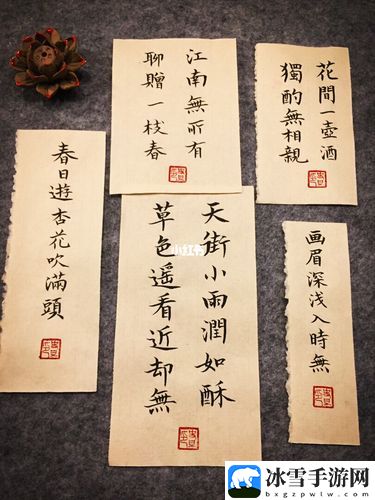 江南無所有
聊贈一枝春
花間一壺酒
獨酌無相親
春日遊杏花吹滿頭
天街小雨潤如酥
草色遥看近却無
画眉深浅入時無
小红书
冰雪手游网
bxgzpwlw.com